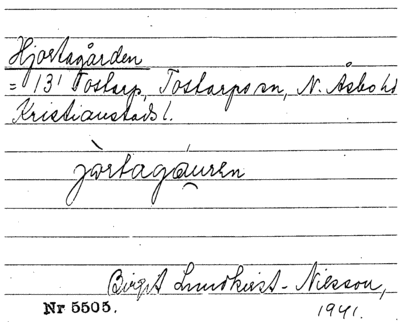 Hjortagården
= 13¹ Tostarp, Tostarps sn, N. Åsbo hd
Kristianstads l.
jòrtagáu̯ren
Birgit Lundkvist-Nilsson,
Nr 5505. 1941.